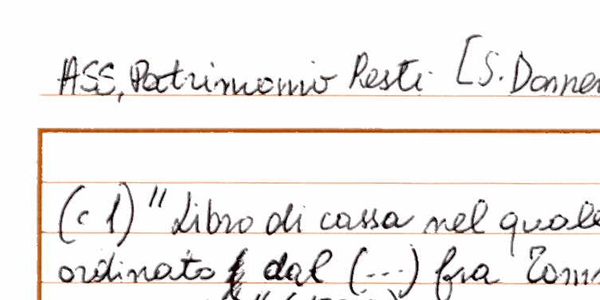 ASS, Patrimonio Resti [S.
(c 1) "Libro di cassa nel quale
ordinato dal (...) fra